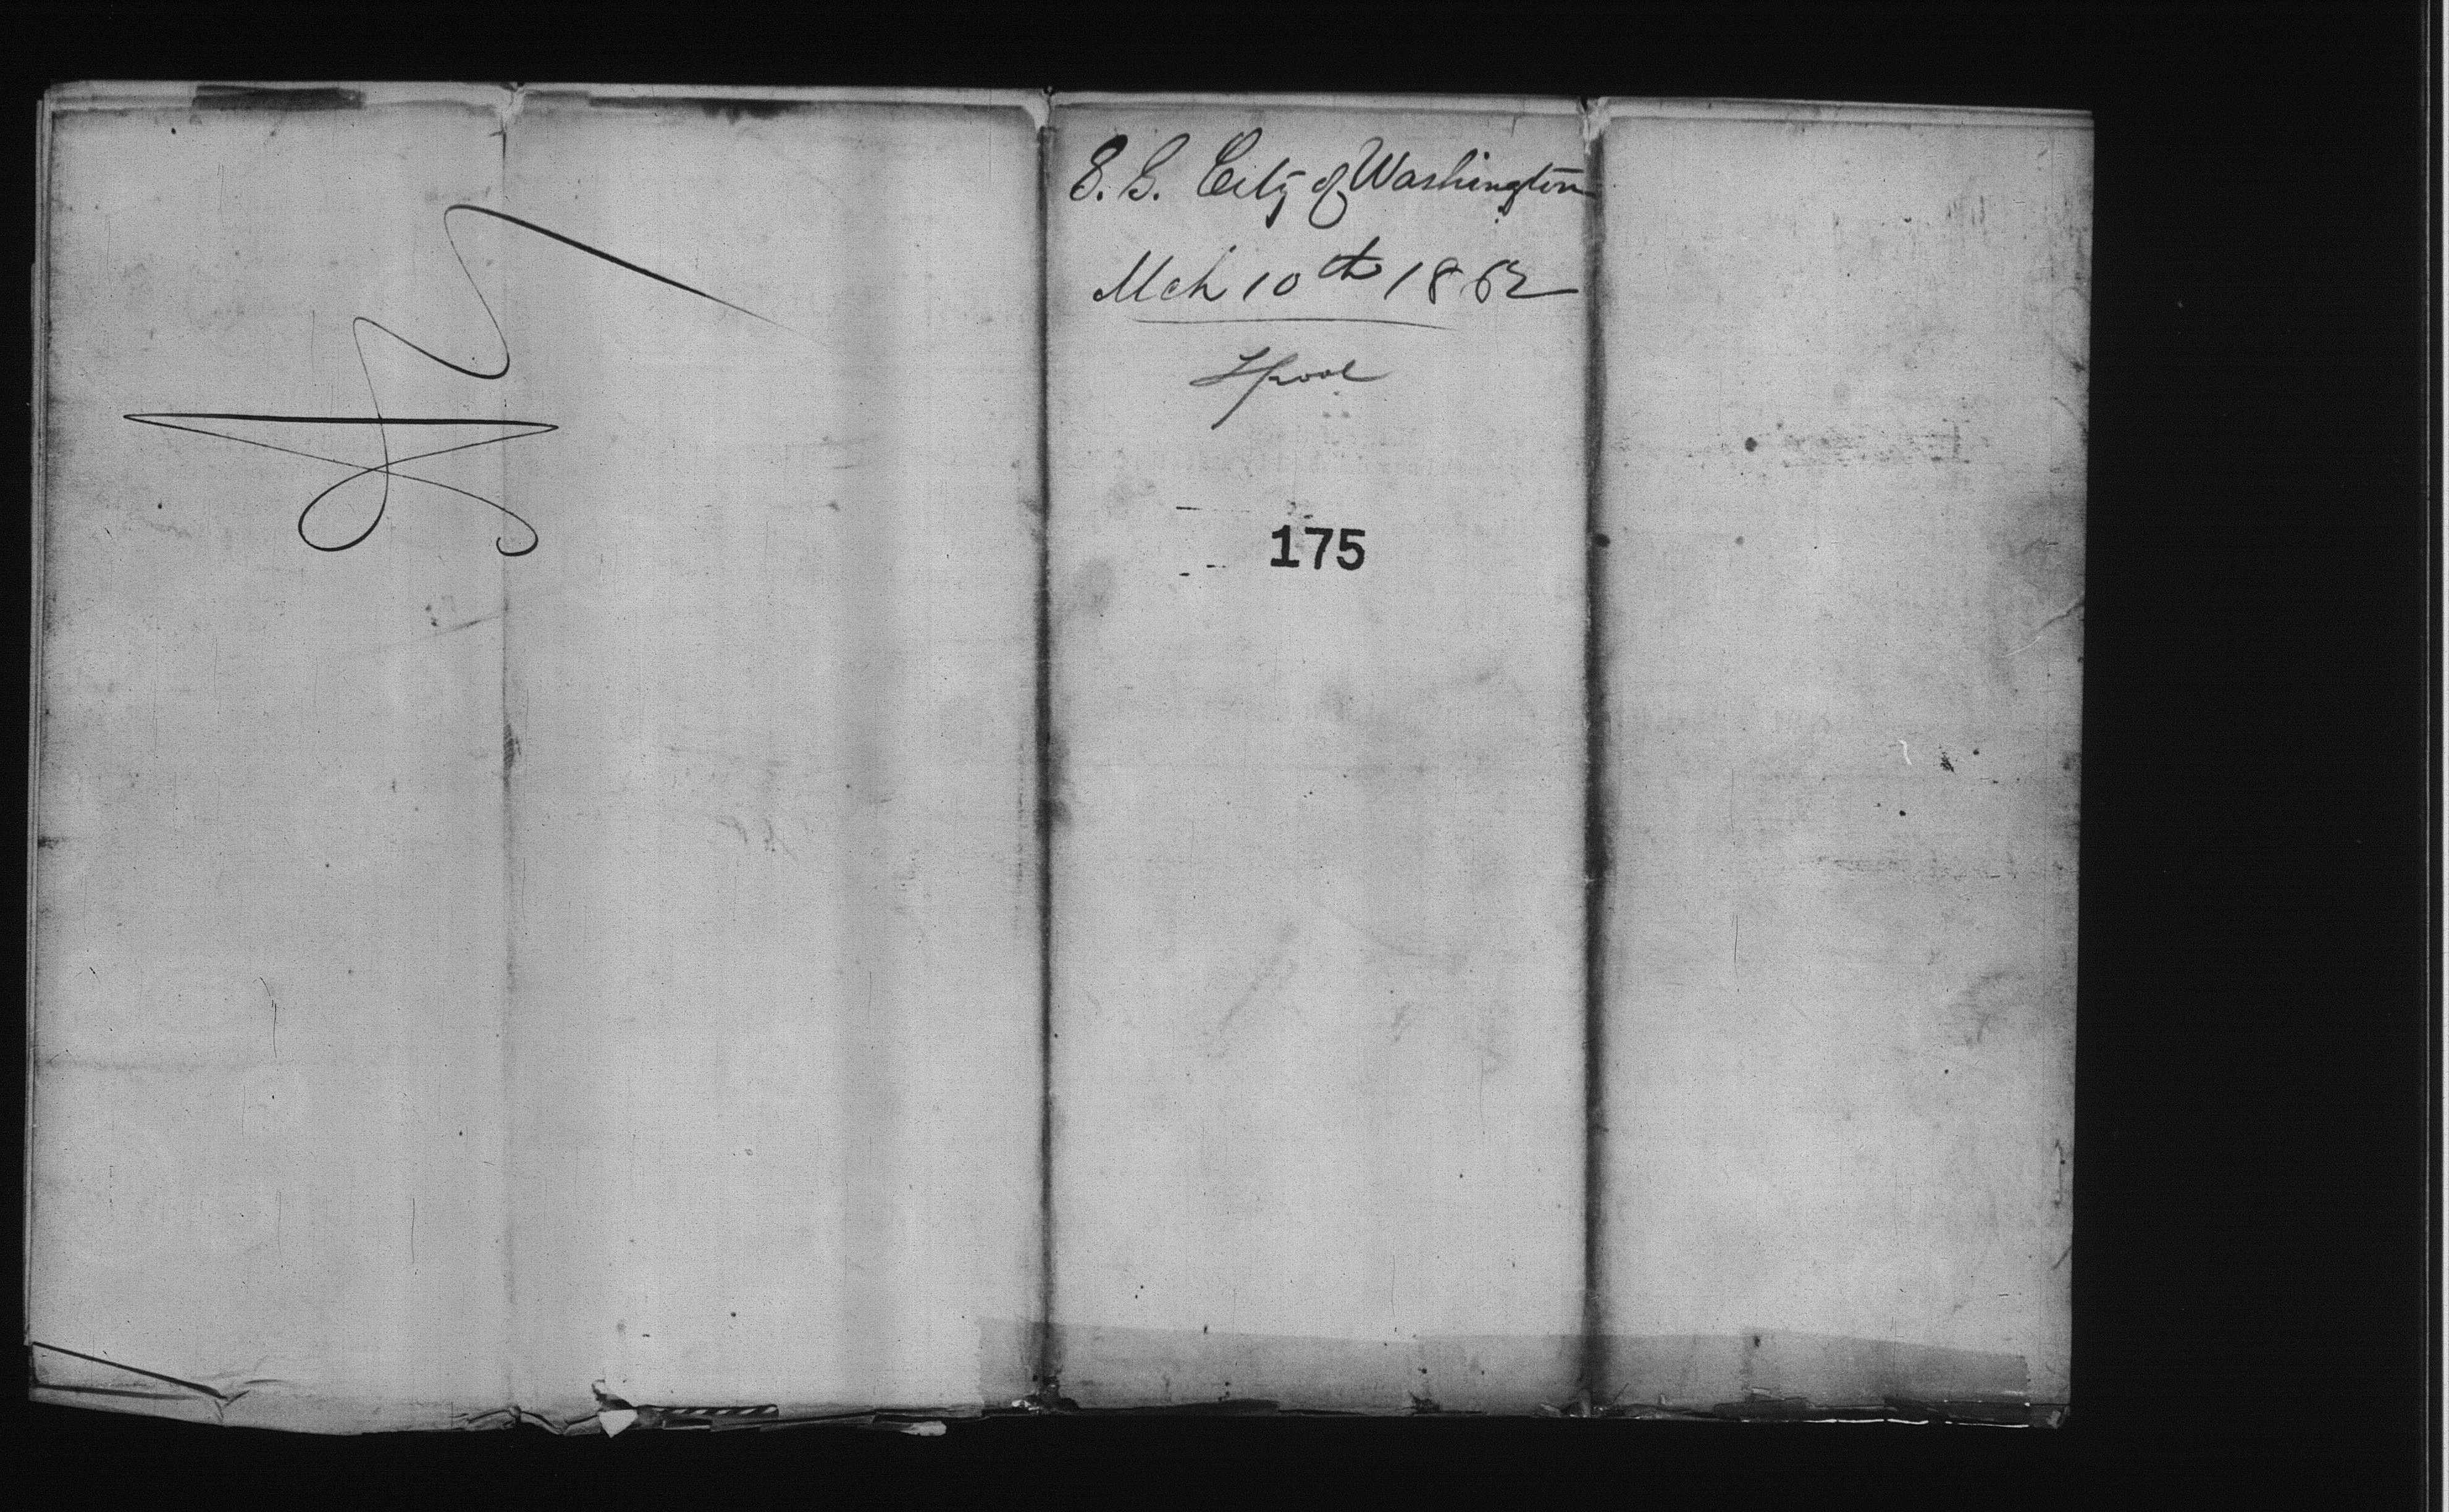 S. S. City of Washington
Mch 10th 1862
Lpool
175